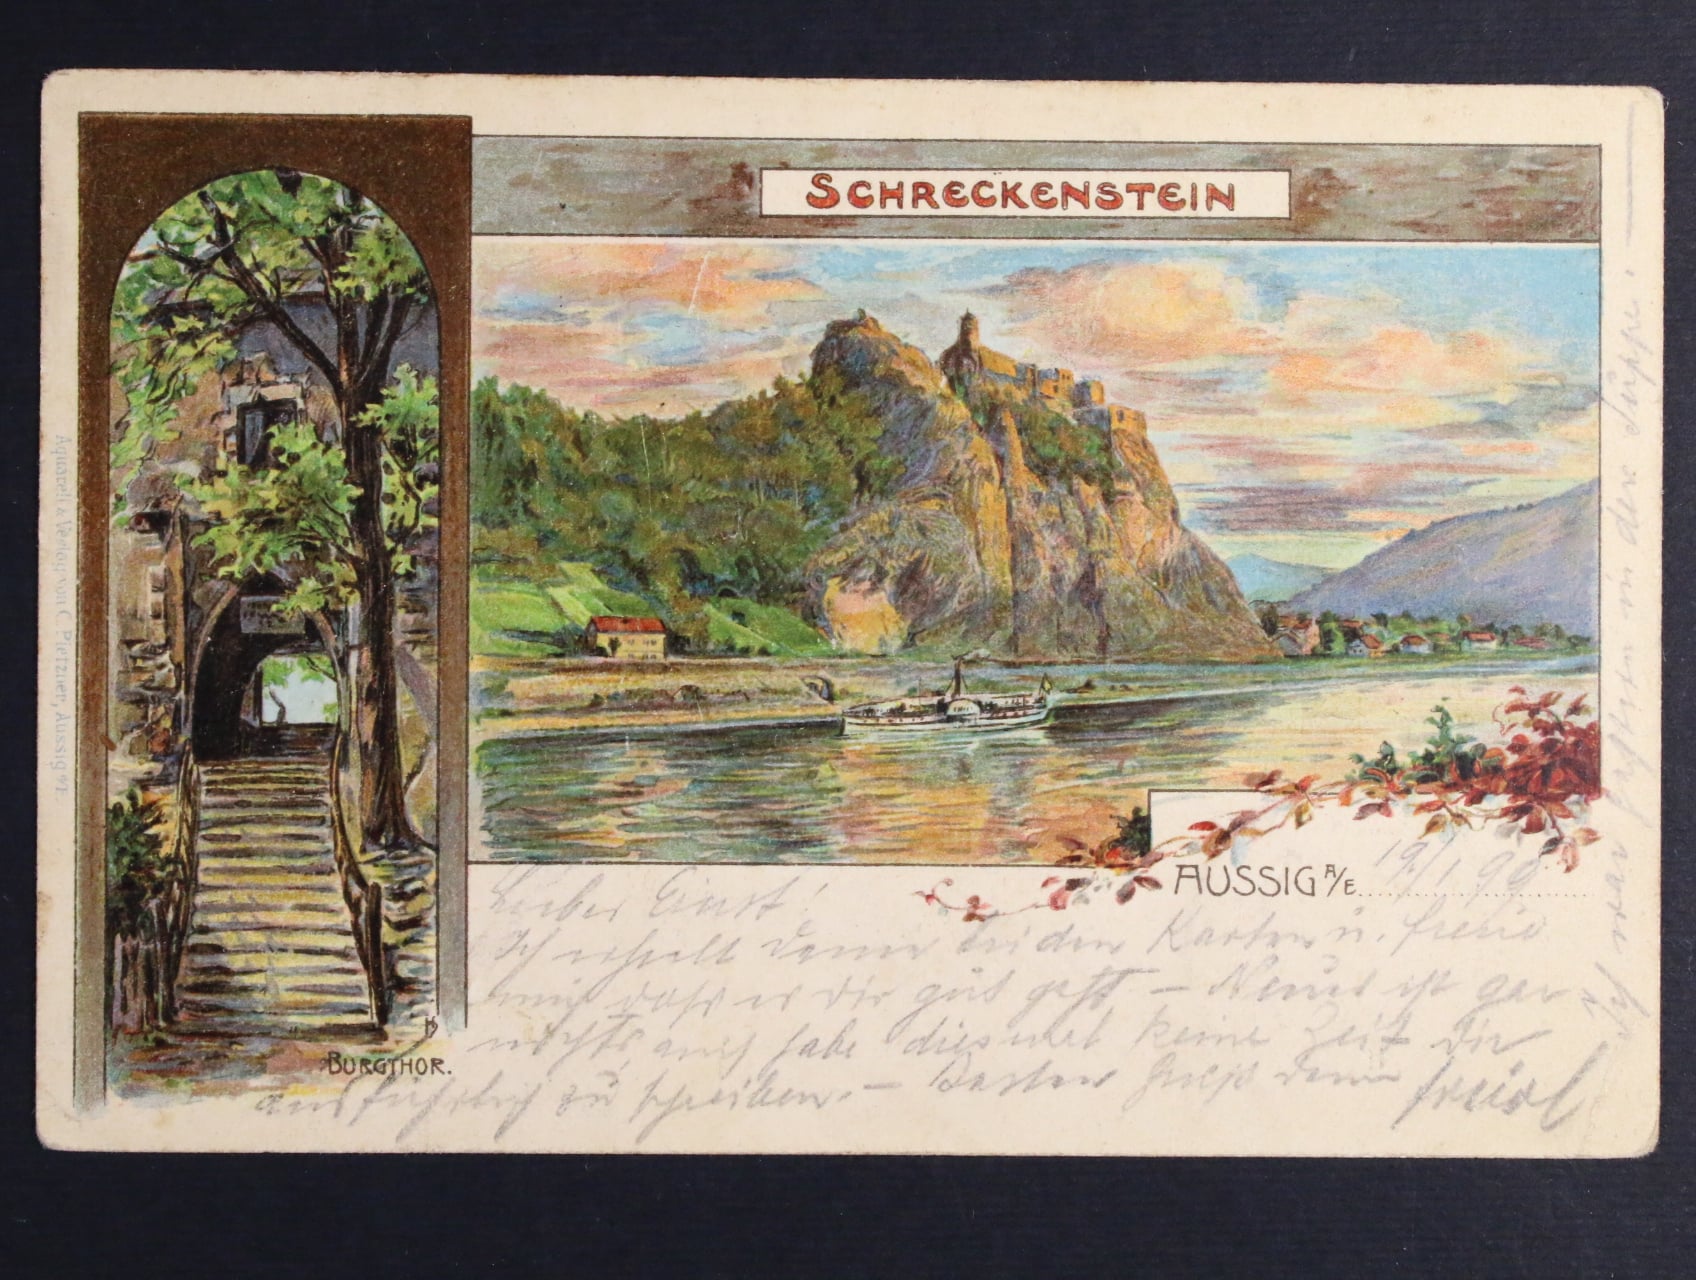 SCHRECKENSTEIN
Aquarell u. Verlag von C. Pietzner, Aussig a/E.
BURGTHOR.
AUSSIG A/E. 19./1 99
Lieber Ernst!
Ich erhielt deine beiden Karten u. freue
mich daß es dir gut geht – Neues ist gar
nichts, auch habe diesmal keine Zeit dir
ausführlich zu schreiben. – Besten Gruß dein
Ich war gestern in der